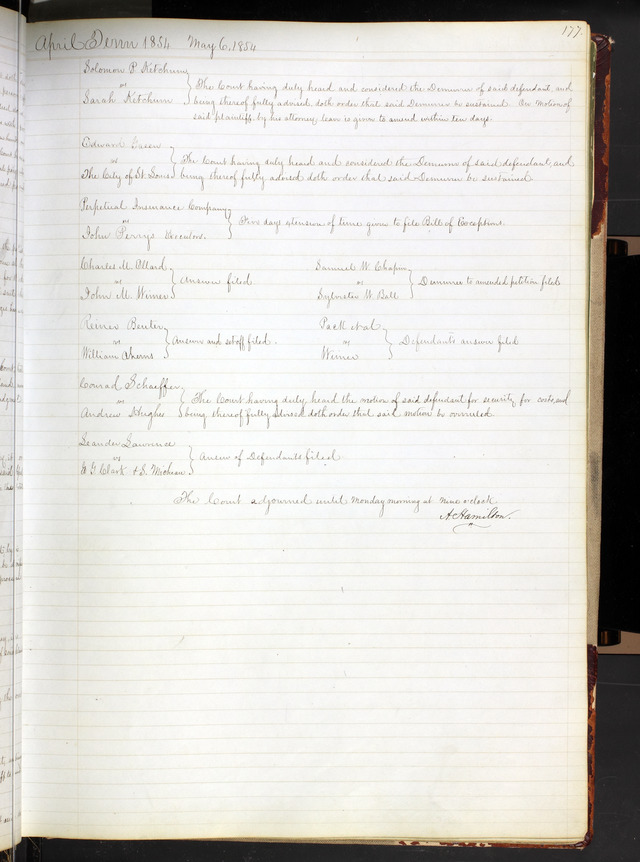 177.
April Term 1854 May 6, 1854
Solomon P. Ketchum
vs
Sarah Ketchum
The Court having duly heard and considered the Demurrer of said defendant, and
being thereof fully advised doth order that said Demurrer be sustained. On Motion of
said plaintiff, by his attorney, leave is given to amend within ten days.
Edward
vs
The City of St Louis
The Court having duly heard and considered the Demurrer of said defendant, and
being thereof fully advised doth order that said Demurrer be sustained
Perpetual Insurance Company
vs
John Perrys Executors.
Five days extension of time given to file Bill of Exceptions.
Charles M. Ollard
vs
John M. Wimer
Answer filed.
Samuel W. Chapin
vs
Sylvester W. Ball
Demurrer to amended petition filed
Reiner Beuter
vs
William Aherns
Answer and set off filed.
Pack et al
vs
Wimer
Defendants answer filed
Conrad Schaeffer
vs
Andrew Hughes
The Court having duly heard the motion of said defendant for security for costs, and
being thereof fully advised doth order that said motion be overruled
Leander Lawrence
vs
Clark & S.
Answer of Defendants filed
The Court adjourned until Monday morning at nine o'clock
A. Hamilton.